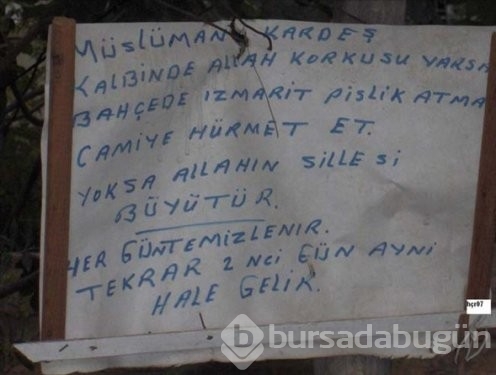 MÜSLÜMAN KARDEŞ
KALBİNDE ALLAH KORKUSU VARSA
BAHÇEDE IZMARİT PİSLİK ATMA
CAMİYE HÜRMET ET.
YOKSA ALLAHIN SİLLESİ
BÜYÜTÜR.
HER GÜNTEMİZLENIR.
TEKRAR 2 NCİ GÜN AYNİ
HALE GELİR.
hçr07
bursadabugün